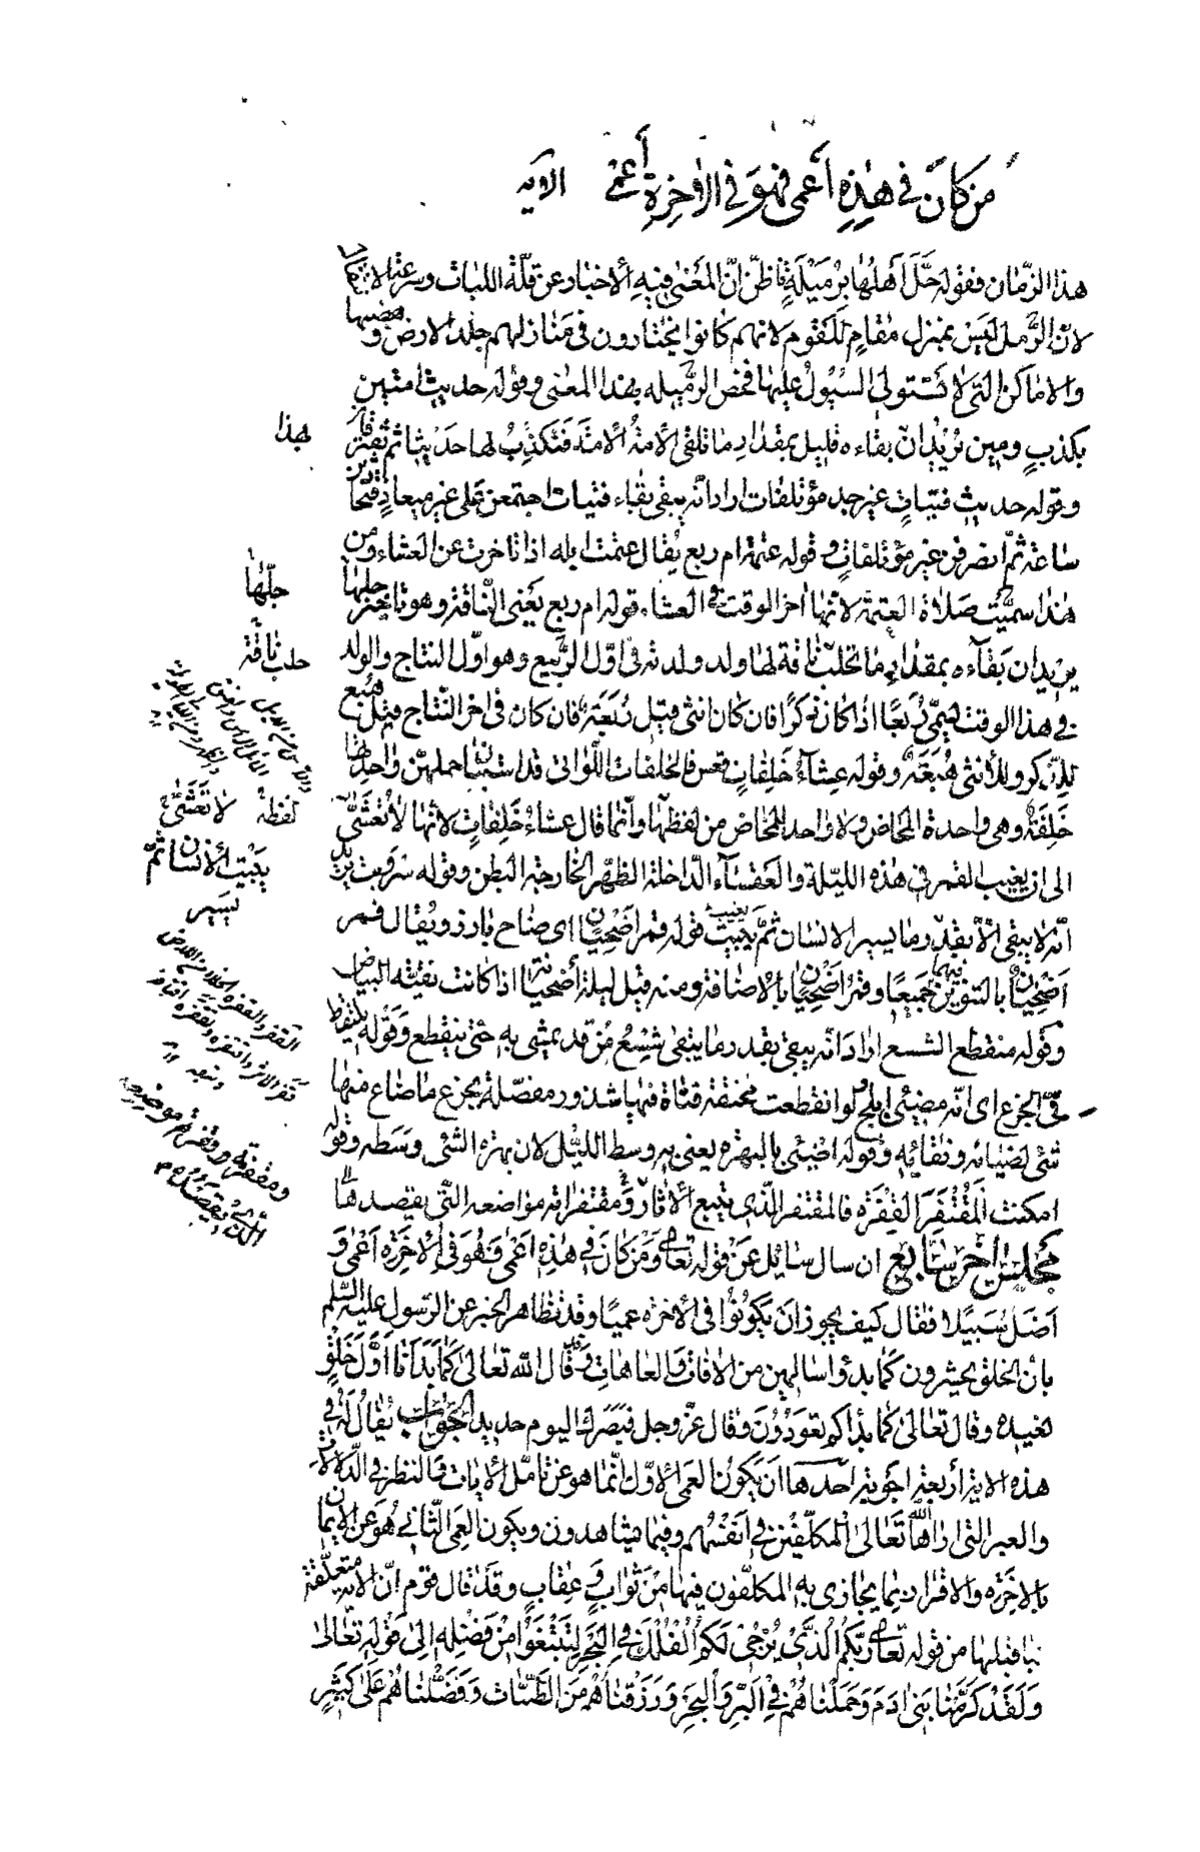 من كان في هذه أعمى فهو في الآخرة أعمى الآية
هذا الزمان فقوله حل أهلها برميلة فاظن ان المعنى فيه الاخبار عن قلة اللباث وسرعة الانتقال
لان الرمل ليس بمنزل مقام للقوم لانهم كانوا يختارون في منازلهم جلد الارض وهضبها
والاماكن التي لا تستولي السيول عليها فخص الرميله بهذا المعنى وقوله حديث امتين
بكذب ومين يريد ان بقاءه قليل بمقدار ما تلقى الامة الامة فتكذب لها حديثا ثم تفترقان
هذا
وقوله حديث فتيات غير جد مؤتلفات اراد انه يبقى بقاء فتيات اجتمعن على غير ميعاد فتحادثن
ساعة ثم انصرفن غير مؤتلفات وقوله عتمة ام ربع يقال عتمت ابله اذا تاخرت عن العشاء ومن
هذا سميت صلاة العتمة لانها اخر الوقت في العشاء وقوله ام ربع يعني الناقة وهو تاخير حلبها
حلبها
يريد ان بقاءه بمقدار ما تحلب ناقة لها ولد ولدته في اول الربيع وهو اول النتاج والولد
حلب ناقة
في هذا الوقت يسمى ربعا اذا كان ذكرا فان كان انثى قيل ربعة فان كان في اخر النتاج قيل هبع
للذكر وللانثى هبعة وقوله عشاء خلفات قعس فالخلفات اللواتي قد استبان حملهن واحدتها
خلفة وهي واحدة المخاض ولا واحد للمخاض من لفظها وانما قال عشاء خلفات لانها لا تعشى
لفظة لا تعشى
الى ان يغيب القمر في هذه الليلة والقعساء الداخلة الظهر الخارجة البطن وقوله سر وبت يريد
يبيت الانسان ثم
يسير
انه لا يبقى الا بقدر ما يسير الانسان ثم يبيت قوله قمر اضحيان اي ضاح بارز ويقال قمر
اضحيان بالتنوين فيهما جميعا وقمر اضحيان بالاضافة ومنه قيل ليلة اضحيانة اذا كانت نقية البياض
وقوله منقطع الشسع اراد انه يبقى بقدر ما يبقى شسع من قد يمشي به حتى ينقطع وقوله يلتقط
في الجزع اي انه مضيئ ابلج لو انقطعت مخنقة فتاة فيها شذور مفصلة بجزع ما ضاع منها
شئ لضيائه ونقائه وقوله اضيئ بالبهره يعني به وسط الليل لان بهرة الشئ وسطه وقوله
امكنت المقتفر القفره فالمقتفر الذي يتبع الاثار ومقتفراته مواضعه التي يقصدها
مجلس اخر سابع ان سال سائل عن قوله تعالى ومن كان في هذه اعمى فهو في الاخرة اعمى و
اضل سبيلا فقال كيف يجوز ان يكونوا في الاخرة عميا وقد تظاهر الخبر عن الرسول عليه السلم
بان الخلق يحشرون كما بدؤا سالمين من الافات والعاهات وقد قال الله تعالى كما بدأنا اول خلق
نعيده وقال تعالى كما بداكم تعودون وقال عز وجل فبصرك اليوم حديد الجواب يقال له في
هذه الاية اربعة اجوبة احدها ان يكون العمى الاول انما هو عن تامل الايات والنظر في الدلالات
والعبر التي اراها الله تعالى المكلفين في انفسهم وفيما يشاهدون ويكون العمى الثاني هو عن الايمان
بالاخره والاقرار بما يجازى به المكلفون فيها من ثواب وعقاب وقد قال قوم ان الاية متعلقة
بما قبلها من قوله تعالى ربكم الذي يزجي لكم الفلك في البحر لتبتغوا من فضله الى قوله تعالى
ولقد كرمنا بني ادم وحملناهم في البر والبحر ورزقناهم من الطيبات وفضلناهم على كثير